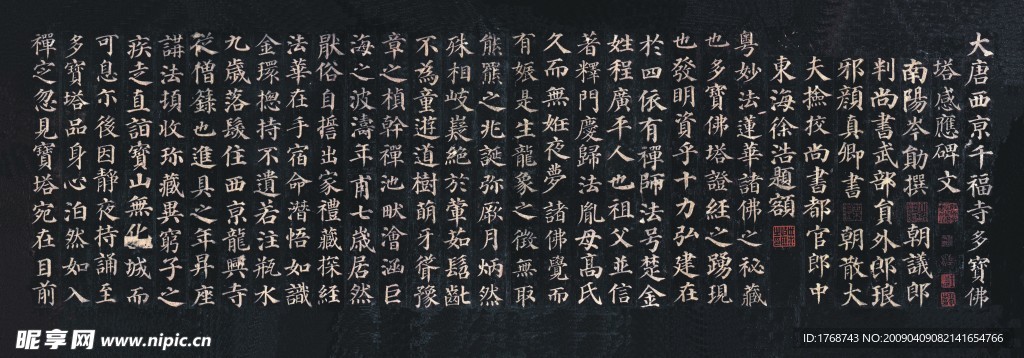 大唐西京千福寺多寶佛
塔感應碑文
南陽岑勛撰 朝議郎
判尚書武部員外郎琅
邪顏真卿書 朝散大
夫撿挍尚書都官郎中
東海徐浩題額
粵妙法蓮華諸佛之秘藏
也多寶佛塔證經之踴現
也發明資乎十力弘建在
於四依有禪師法号楚金
姓程廣平人也祖父並信
著釋門慶歸法胤母高氏
久而無姙夜夢諸佛覺而
有娠是生龍象之徵無取
熊羆之兆誕弥厥月炳然
殊相岐嶷絕於葷茹髫齔
不為童遊道樹萌牙聳豫
章之楨幹禪池畎澮涵巨
海之波濤年甫七歲居然
猒俗自誓出家禮藏探經
法華在手宿命潛悟如識
金環揔持不遺若注瓶水
九歲落髮住西京龍興寺
從僧籙也進具之年昇座
講法頓收珎藏異窮子之
疾走直詣寶山無化城而
可息尒後因靜夜持誦至
多寶塔品身心泊然如入
禪定忽見寶塔宛在目前
昵享网 www.nipic.cn
ID:1768743 NO:20090409082141654766